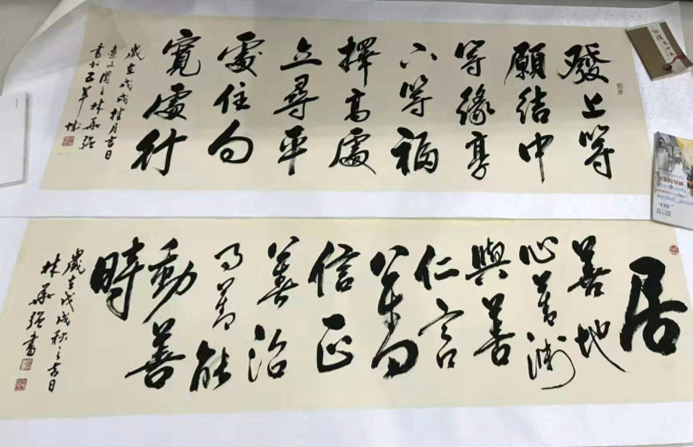 發上等
願結中
等緣享
下等福
擇高處
立尋平
處住向
寬處行
歲在戊戌桂月吉日
居
善地
心善渊
與善
仁言
善
信正
善治
事善能
動善
時
歲在戊戌秋之吉日